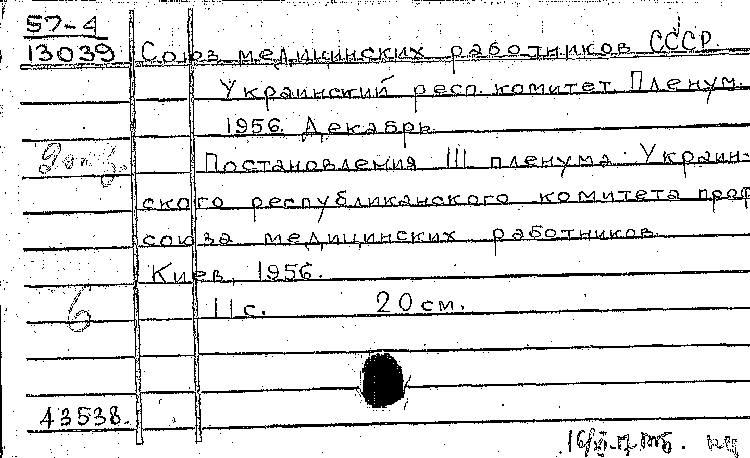 57-4
13039 Союз медицинских работников СССР.
Украинский респ. комитет. Пленум.
1956. Декабрь.
Постановления III пленума Украин-
ского республиканского комитета проф
союза медицинских работников.
Киев, 1956.
6 11 с. 20 см.
43538.